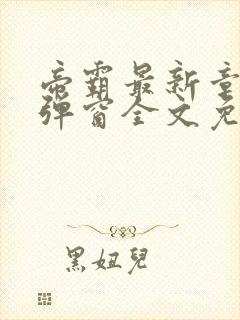 帝霸最新章
弹窗全文免
黑妞兒